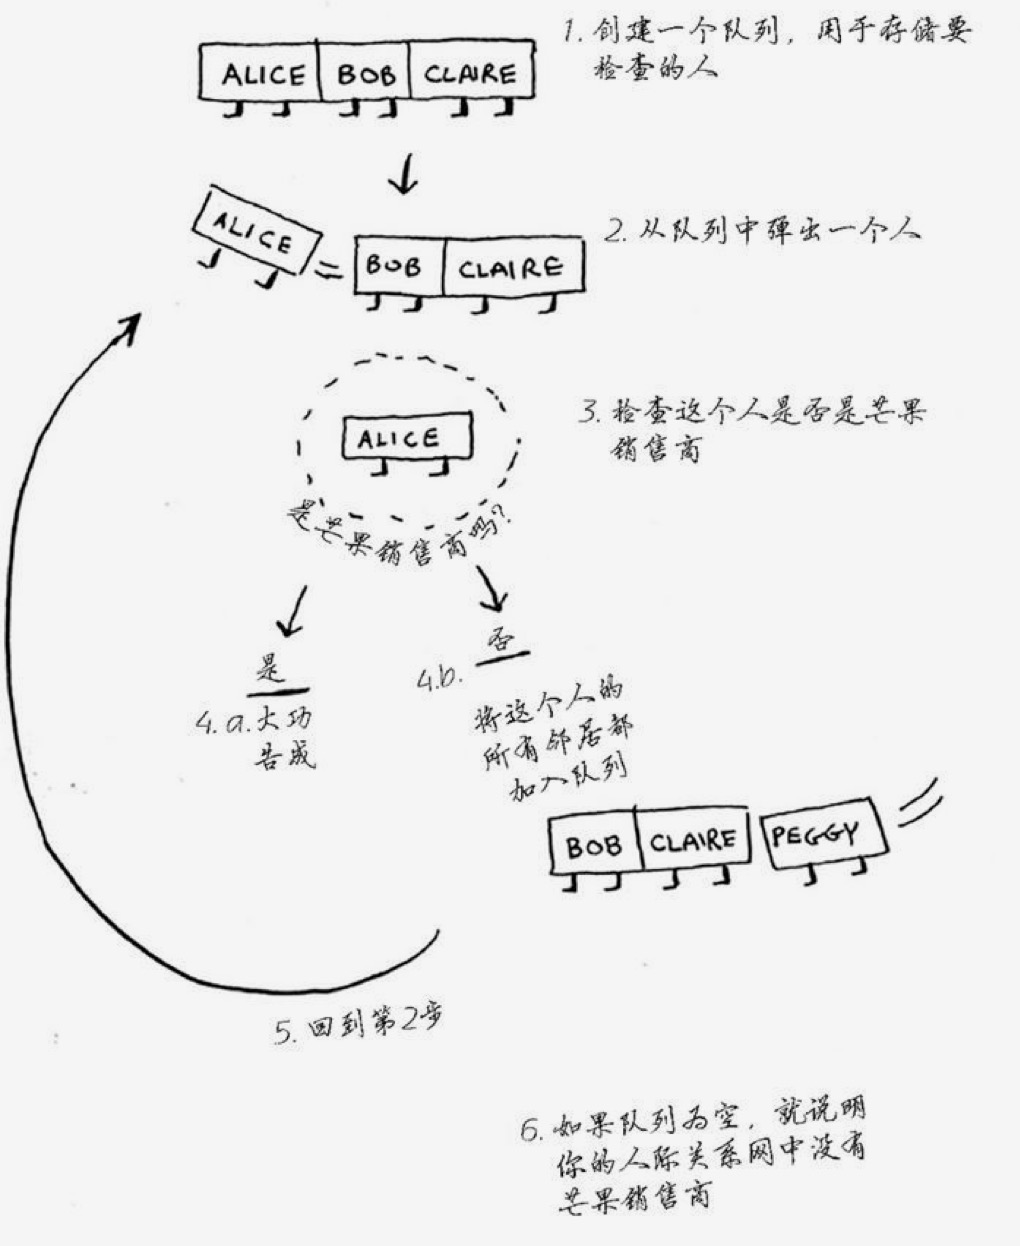 1. 创建一个队列，用于存储要
检查的人
ALICE BOB CLAIRE
2. 从队列中弹出一个人
ALICE
BOB CLAIRE
3. 检查这个人是否是芒果
销售商
ALICE
是芒果销售商吗？
是
4.a. 大功
告成
否
4.b.
将这个人的
所有邻居都
加入队列
BOB CLAIRE PEGGY
5. 回到第2步
6. 如果队列为空，就说明
你的人际关系网中没有
芒果销售商